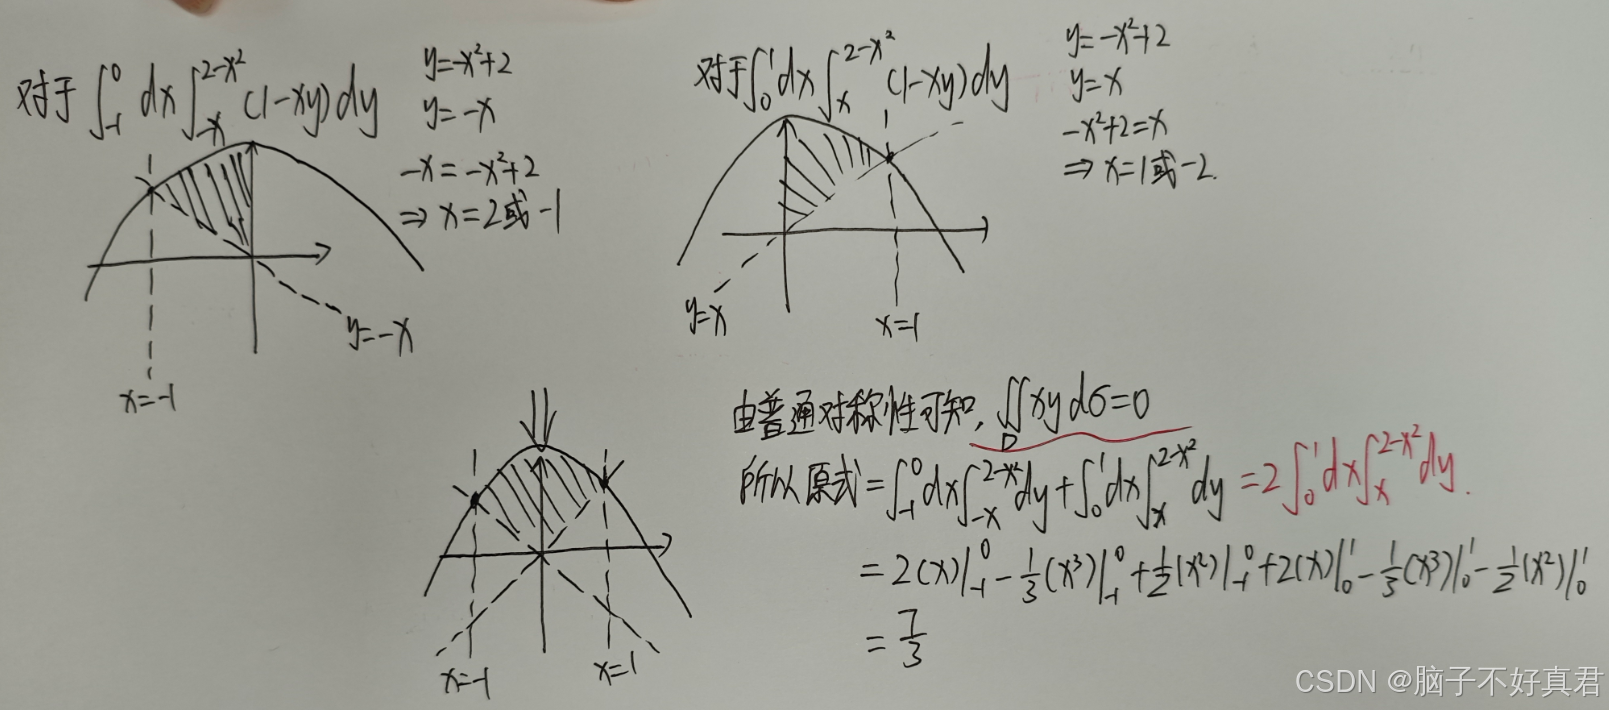 对于∫₋₁⁰dx∫₋ₓ^{2-x²}(1-xy)dy
y=-x²+2
y=-x
-x=-x²+2
⇒ x=2或-1
y=-x
x=-1
对于∫₀¹dx∫ₓ^{2-x²}(1-xy)dy
y=-x²+2
y=x
-x²+2=x
⇒ x=1或-2.
y=x
x=1
x=-1
x=1
由普通对称性可知,∬_D xydσ=0
所以原式=∫₋₁⁰dx∫₋ₓ^{2-x²}dy+∫₀¹dx∫ₓ^{2-x²}dy=2∫₀¹dx∫ₓ^{2-x²}dy.
=2(x)|₋₁⁰-1/3(x³)|₋₁⁰+1/2(x²)|₋₁⁰+2(x)|₀¹-1/3(x³)|₀¹-1/2(x²)|₀¹
=7/3
CSDN @脑子不好真君